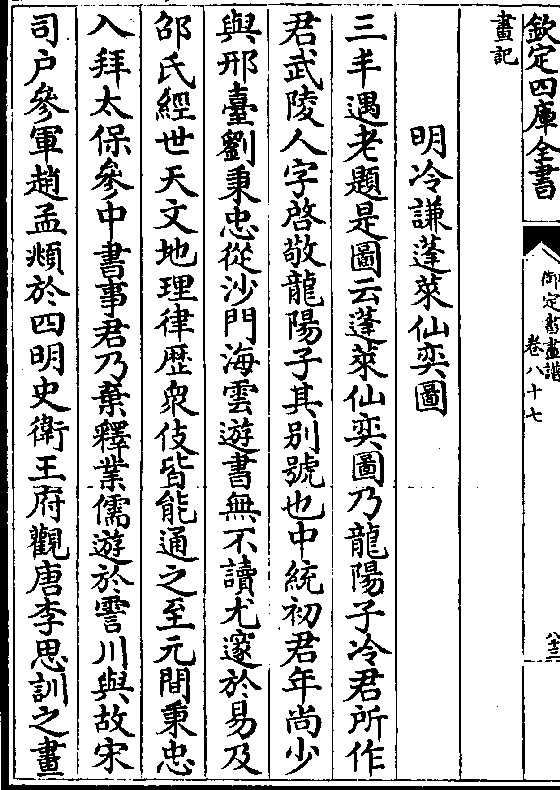 欽定四庫全書
御定書畫譜
卷八十七
畫記
明冷謙蓬萊仙奕圖
三丰遇老題是圖云蓬萊仙奕圖乃龍陽子冷君所作
君武陵人字啓敬龍陽子其别號也中統初君年尚少
與邢臺劉秉忠從沙門海雲遊書無不讀尤邃於易及
邵氏經世天文地理律歴衆伎皆能通之至元間秉忠
入拜太保參中書事君乃棄釋業儒遊於霅川與故宋
司户參軍趙孟頫於四明史衛王府觀唐李思訓之畫